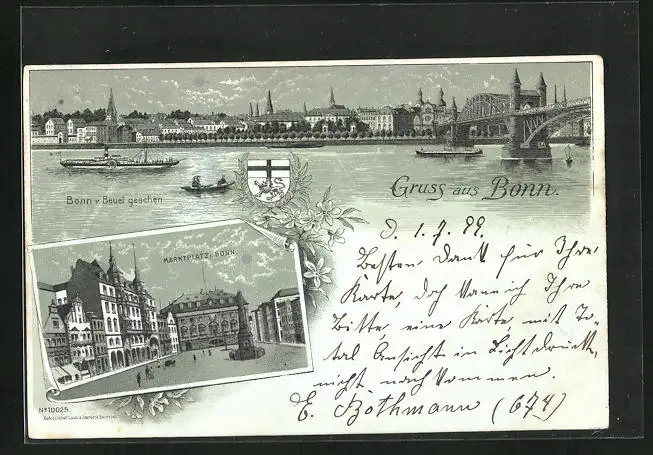 Gruss aus Bonn.
Bonn v Beuel gesehen
MARKTPLATZ i. BONN.
D. 1. 7. 99.
Besten Dank für Ihre
Karte, doch kann ich Ihre
Bitte, eine Karte, mit To-
tal Ansicht in Lichtdruck,
nicht nachkommen.
E. Bothmann (674)
No 10025.